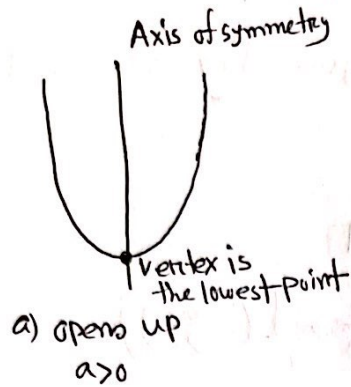 Axis of symmetry
vertex is
the lowest point
a) opens up
a>0